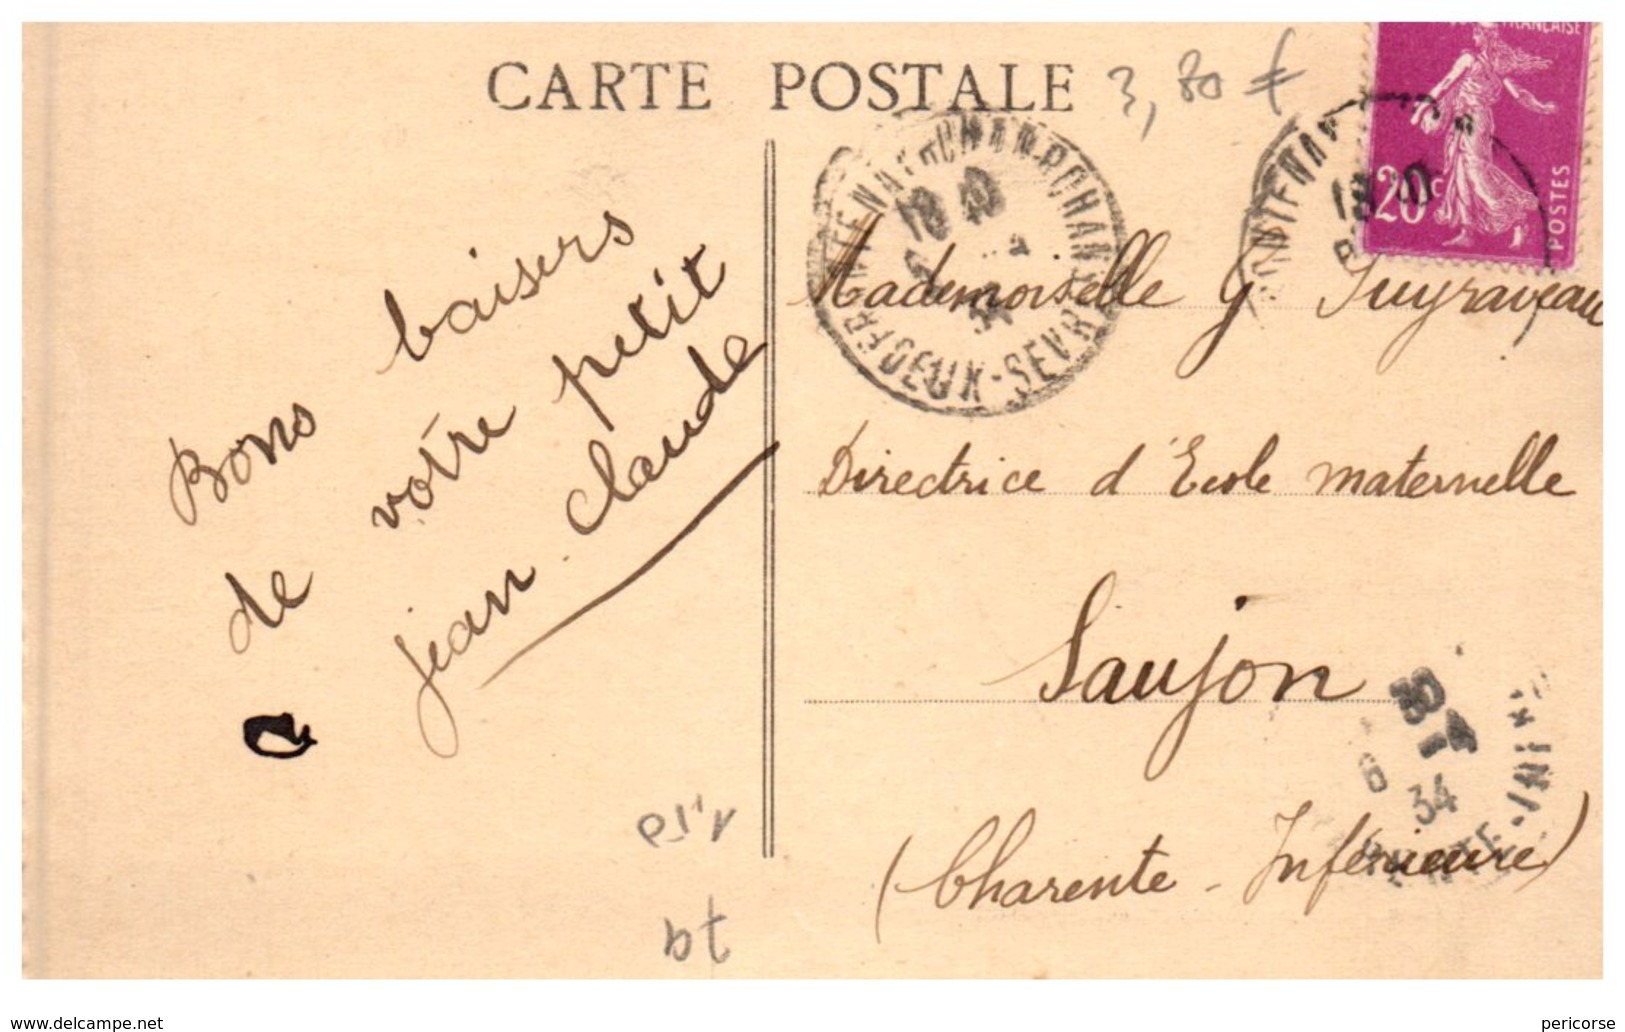 CARTE POSTALE
3,80 €
FRANÇAISE
20c
POSTES
18 40
34
DEUX-SEVRES
Bons baisers
de votre petit
jean-claude
Mademoiselle G Puyraveau
Directrice d'Ecole maternelle
Saujon
(Charente-Inférieure)
30
6 -4
34
79
www.delcampe.net
pericorse